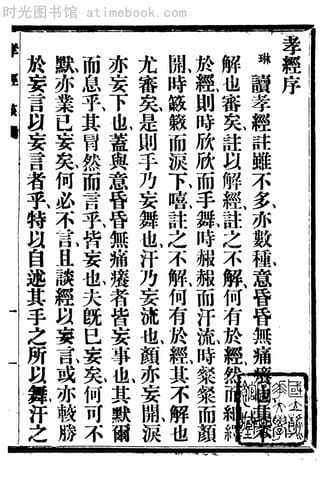 时光图书馆 - www.atimebook.com
孝經序
琳
讀孝經註雖不多亦數種意昏昏無痛癢也
解也審矣註以解經註之不解何有於經然而紬繹
於經則時欣欣而手舞時赧赧而汗流時粲粲而顏
開時簌簌而淚下嘻註之不解何有於經其不解也
尤審矣是則手乃妄舞也汗乃妄流也顏亦妄開淚
亦妄下也蓋與意昏昏無痛癢者皆妄事也其默爾
而息乎其冐然而言乎皆妄也夫旣已妄矣何可不
默亦業已妄矣何必不言且談經以妄言或亦較勝
於妄言以妄言者乎特以自述其手之所以舞汗之
孝經